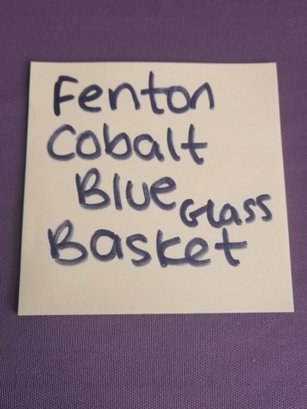 Fenton
Cobalt
Blue Glass
Basket